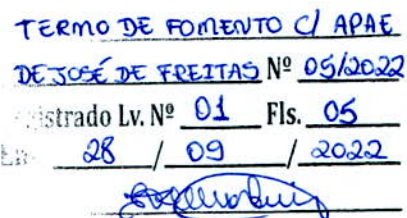 TERMO DE FOMENTO C/ APAE
DE JOSÉ DE FREITAS Nº 05/2022
istrado Lv. Nº 01 Fls. 05
28 / 09 / 2022